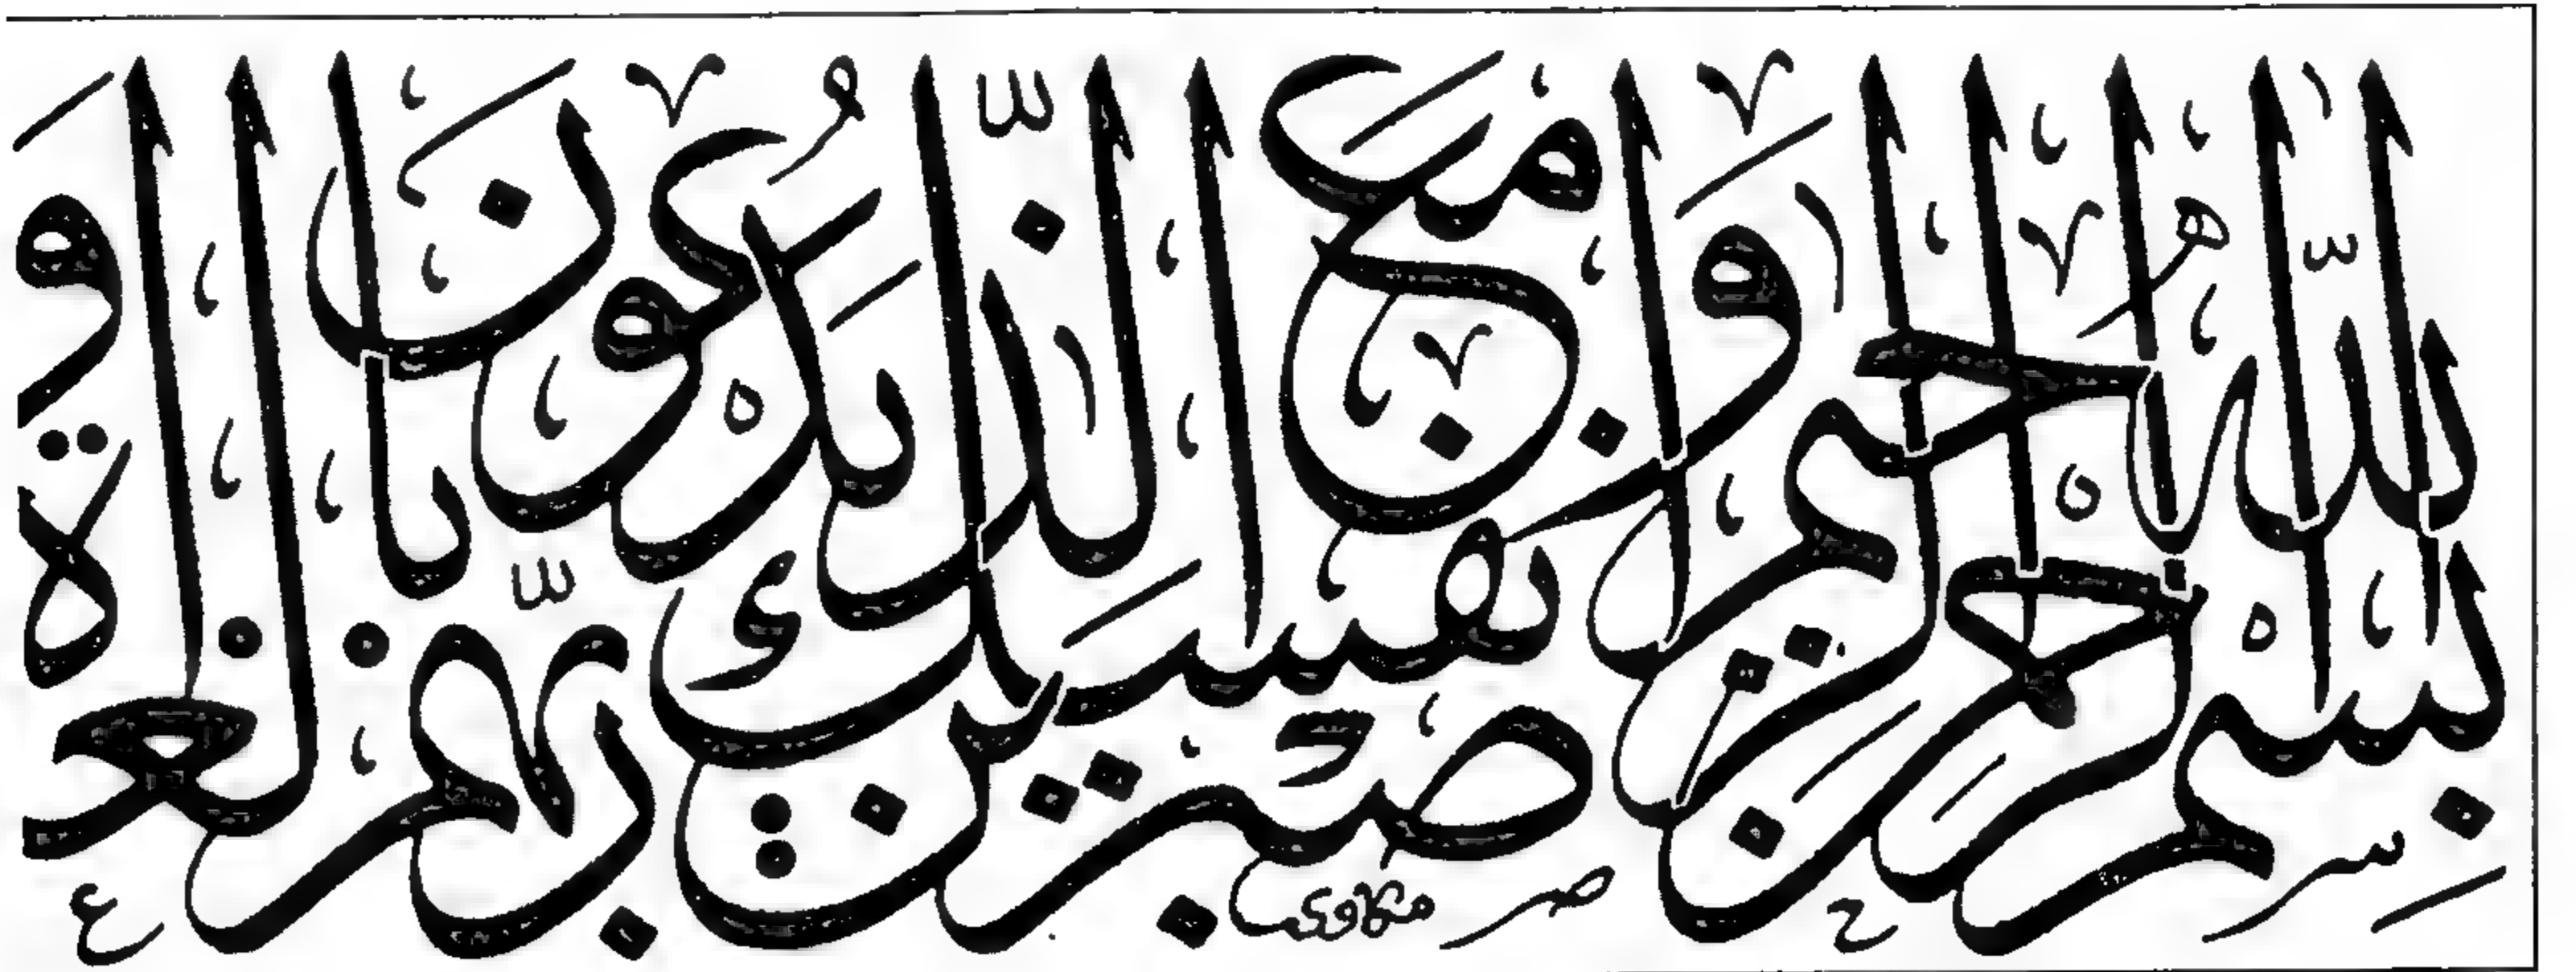 بسم الله الرحمن الرحيم واصبر نفسك مع الذين يدعون ربهم